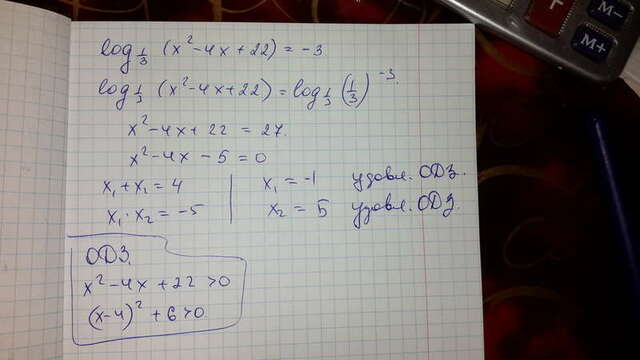 log 1/3 (x² - 4x + 22) = -3
log 1/3 (x² - 4x + 22) = log 1/3 (1/3)⁻³.
x² - 4x + 22 = 27.
x² - 4x - 5 = 0
x₁ + x₂ = 4 | x₁ = -1 удовл. ОДЗ.
x₁ · x₂ = -5 | x₂ = 5 удовл. ОДЗ.
ОДЗ.
x² - 4x + 22 > 0
(x-4)² + 6 > 0
M-
M+